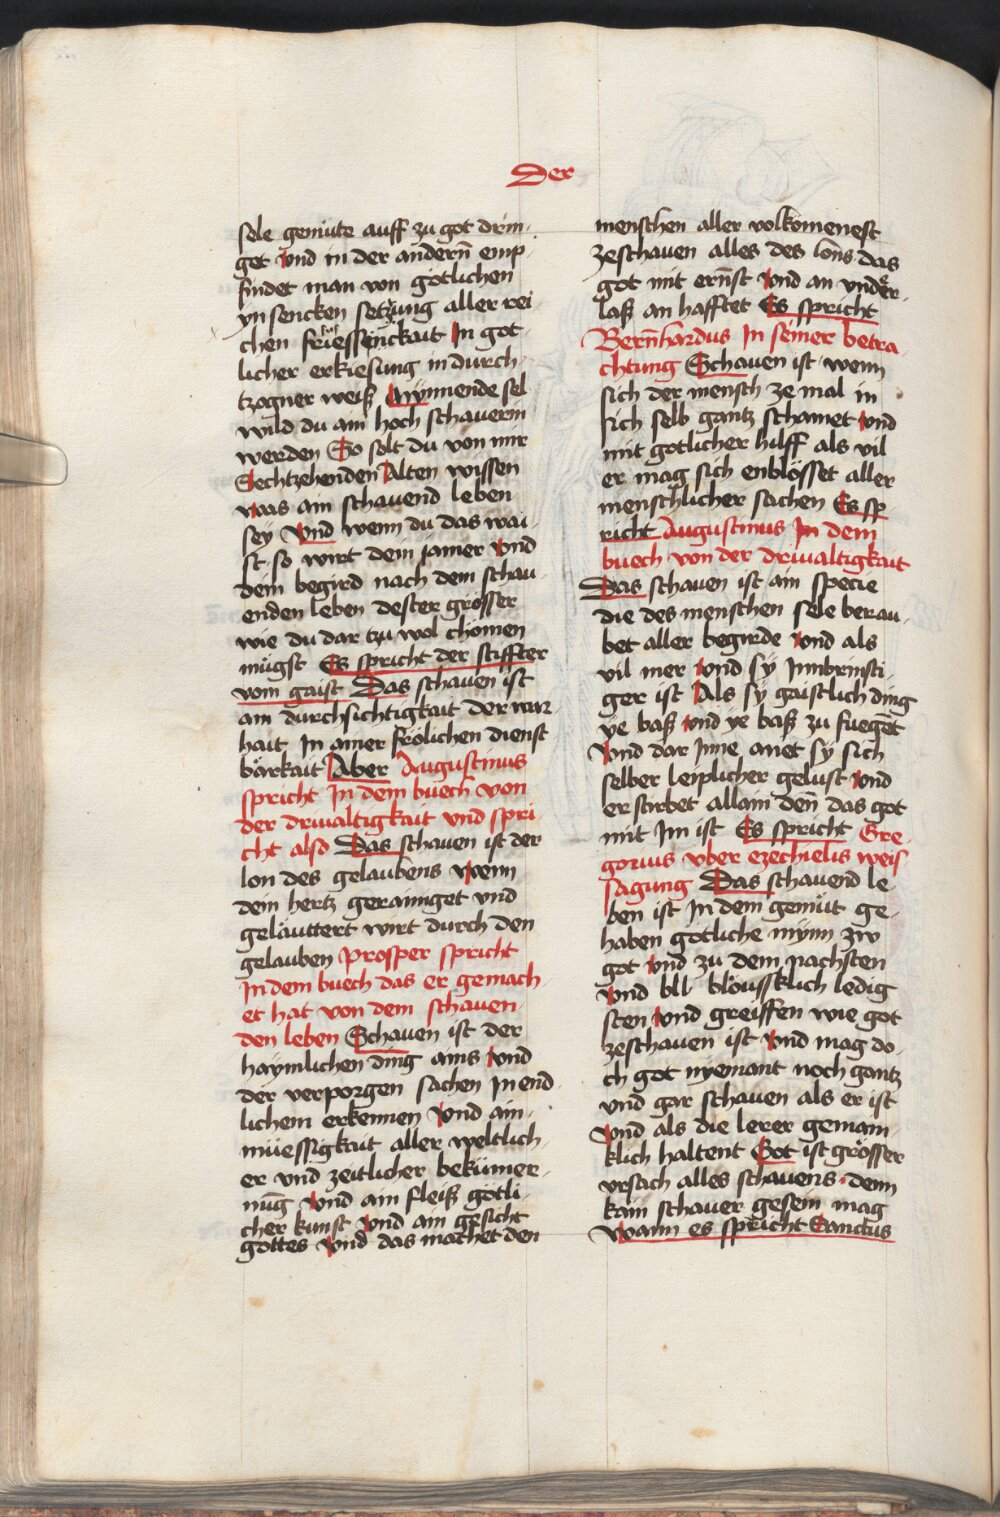 Der
sele gemüte auff zu got drin-
get Vnd in der andern̄ emp-
findet man von götlichen
yn sencken setzung aller rei-
chen früessenckait In got-
licher erkiesung in durch-
tzogner weiß Mynnende sel
wild du ain hoch schauerin
werden So solt du von mir
Sechtzehenden Alten wissen
was ain schauend leben
sey Vnd wenn du das wai-
st so wirt dem jamer Vnd
dem begird nach dem schau-
enden leben dester grösser
wie du dar tzu wol chömen
mügst Es spricht der stiffter
vom gaist Das schauen ist
ain durchsichtigkait der war-
hait In ainer frölichen dienst
bärkait Aber Augustinus
spricht In dem buech von
der driualtigkait vnd spri
cht also Das schauen ist der
lon des gelaubens wenn
dem hertz gerainiget vnd
geläuttert wirt durch den
gelauben Prosper spricht
In dem buech das er gemach
et hat von dem schauen
den leben Schauen ist der
haymlichen ding ains Vnd
der verporgen sachen In end
lichem erkennen Vnd ain
müessigkait aller weltlich-
er vnd zeitlicher bekümer-
nüg Vnd ain fleiß götli-
cher kunst Vnd ain gesicht
gottes Vnd das machet den
menschen aller volkomenest
zeschauen alles des lons das
got mit ernst Vnd an vnder-
laß an hafftet Es spricht
Bern̄hardus In seiner betra
chtung Schauen ist wenn
sich der mensch ze mal in
sich selb gantz schamet Vnd
mit gotlicher hilff als vil
er mag sich enblösset aller
menschlicher sachen Es sp
richt Augustinus In dem
buech von der driualtigkait
Das schauen ist ain specie
die des menschen sele berau-
bet aller begirde Vnd als
vil mer Vnd sy Innbrinsti-
ger ist Als sy gaistlich ding
ye baß Vnd ye baß zu fueget
Vnd dar Inne anet sy sich
selber leiplicher gelust Vnd
erstirbet allain den̄ das got
mit Im ist Es spricht Gre-
gorius vber ezechielis weis
sagung Das schauend le-
ben ist In dem gemüt ge-
haben gotliche mynn zw
got Vnd zu dem nachsten
Vnd bll blöussklich ledig
sten Vnd greiffen wie got
zeschauen ist Vnd mag do-
ch got nyemant noch gantz
vnd gar schauen als er ist
Vnd als die lerer gemain-
klich haltent Got ist grösser
vrsach alles schauens denn
kain schauer gesein mag
wann es spricht Sanctus